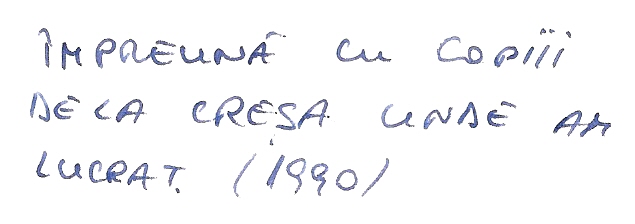 ÎMPREUNĂ CU COPIII
DE LA CREȘA UNDE AM
LUCRAT. (1990)